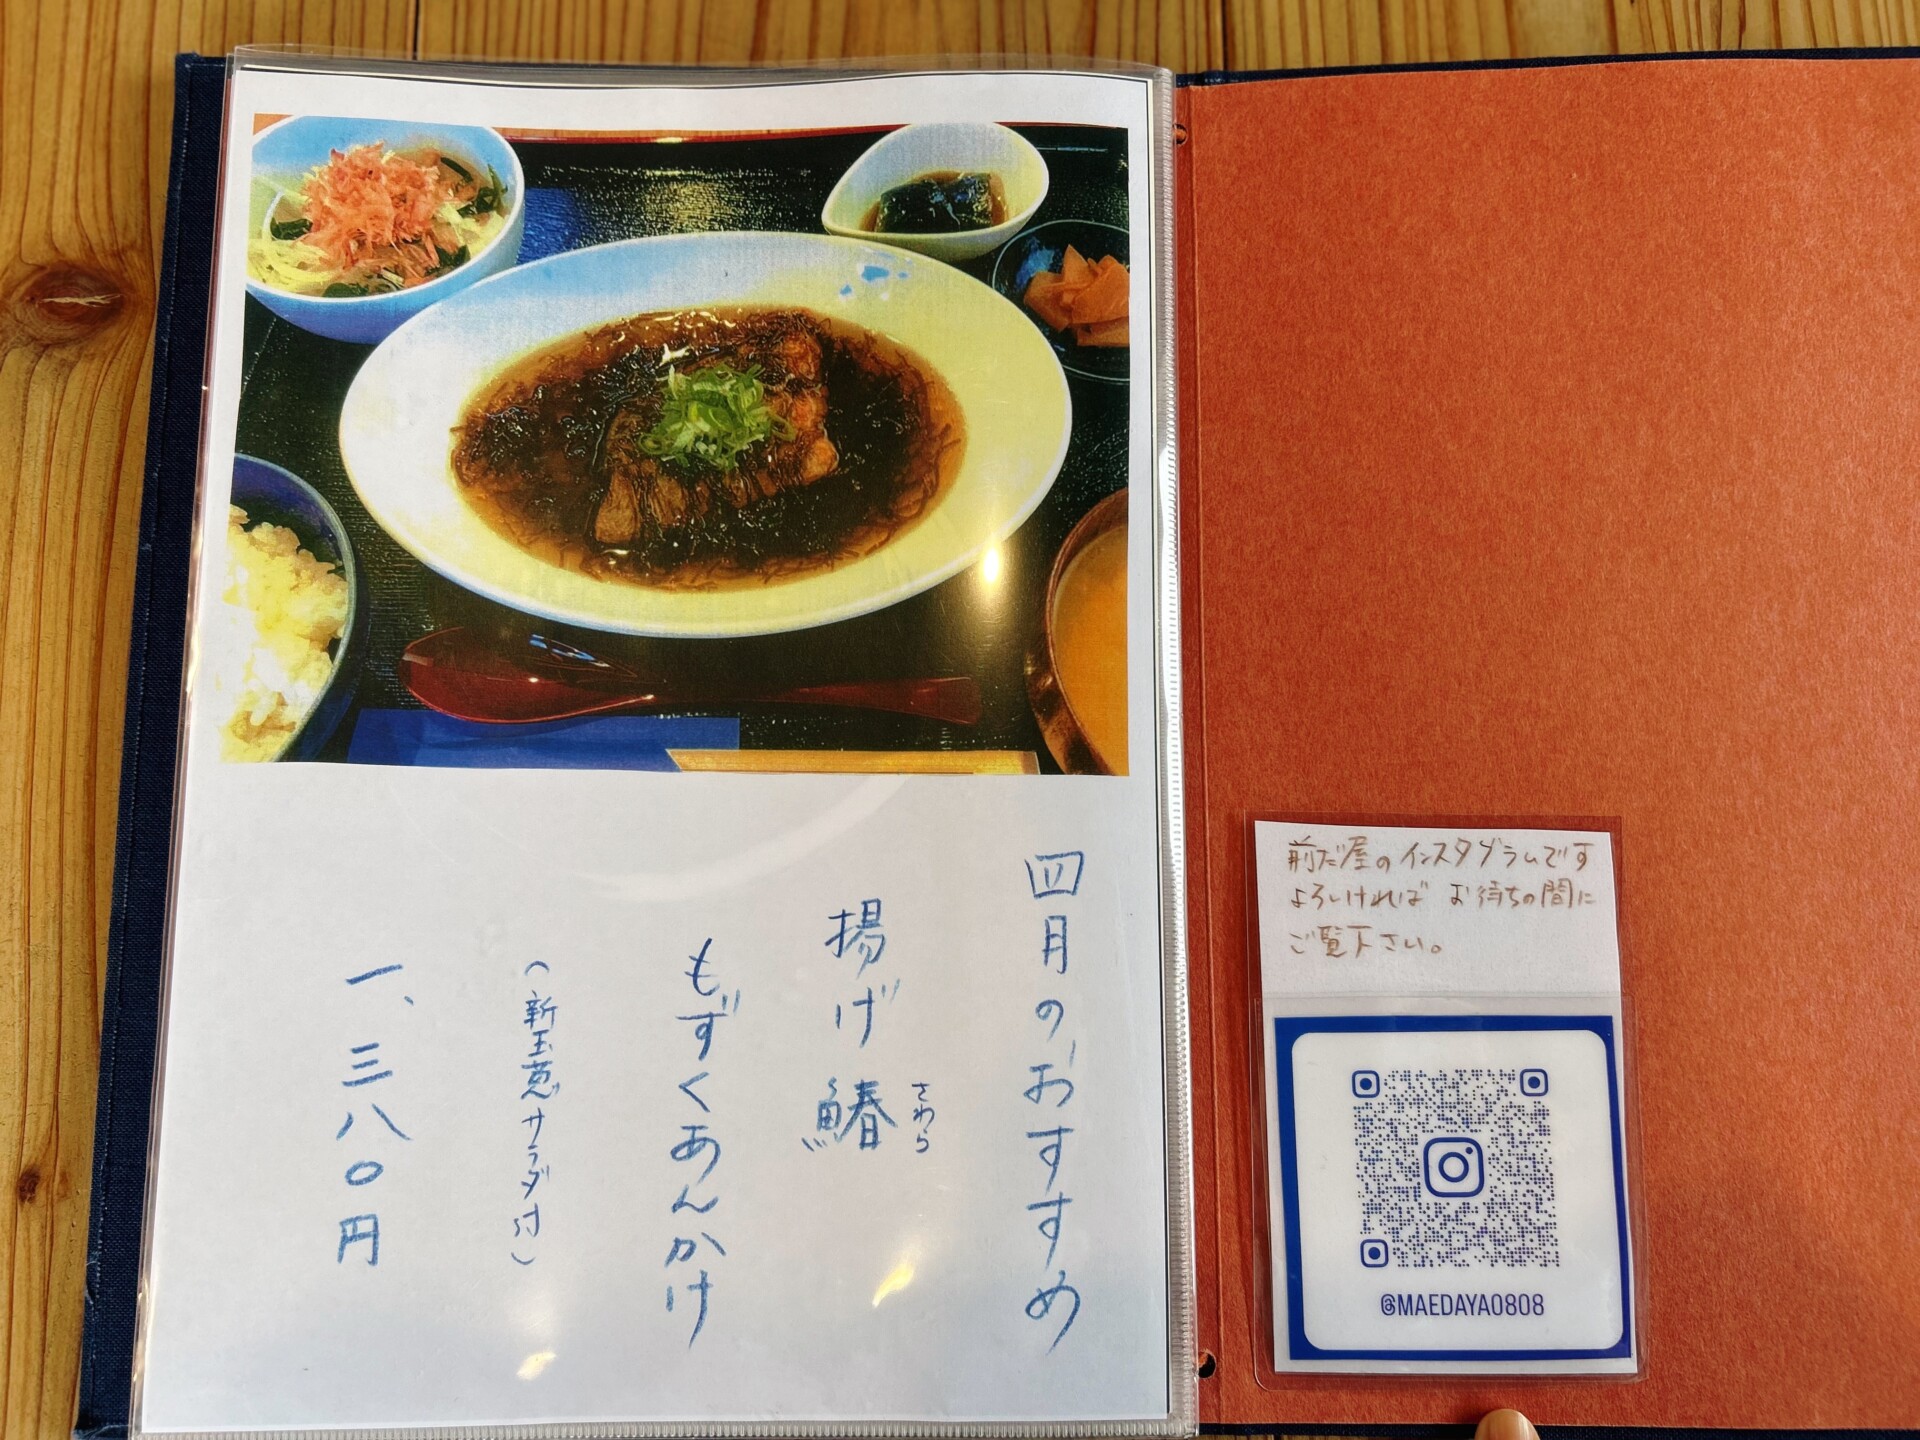 四月のおすすめ
揚げ鰆
さわら
もずくあんかけ
(新玉葱サラダ付)
一、三八〇円
前だ屋のインスタグラムです
よろしければ お待ちの間に
ご覧下さい。
@MAEDAYA0808